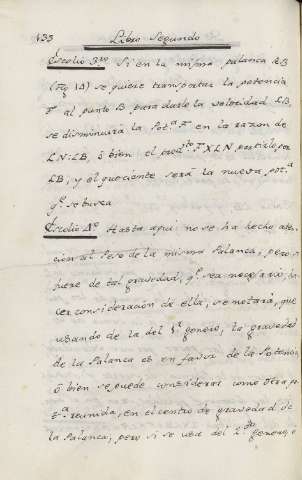 135 Libro Segundo
Escolio 3º Si en la misma palanca LB
(Fig 12) se quiere transportar la potencia
F al punto B para darle la velocidad LB,
se disminuirá la Potª F en la razon de
LN:LB, ó bien el prodᵗᵒ F×LN partirlo por
LB, y el quociente será la nueva, potª
qᵉ se busca
Escolio 4º Hasta aqui no se ha hecho aten-
cion al Peso de la misma Palanca, pero si
fuere de tal gravedad, qᵉ sea necesario, ha-
cer consideración de ella, se notará, que
usando de la del 1º genero, la gravedad
de la Palanca es en favor de la Potencia
ó bien se puede considerar como otra p
reunida, en el centro de gravedad de
la Palanca, pero si se usa del 2º genero, ó